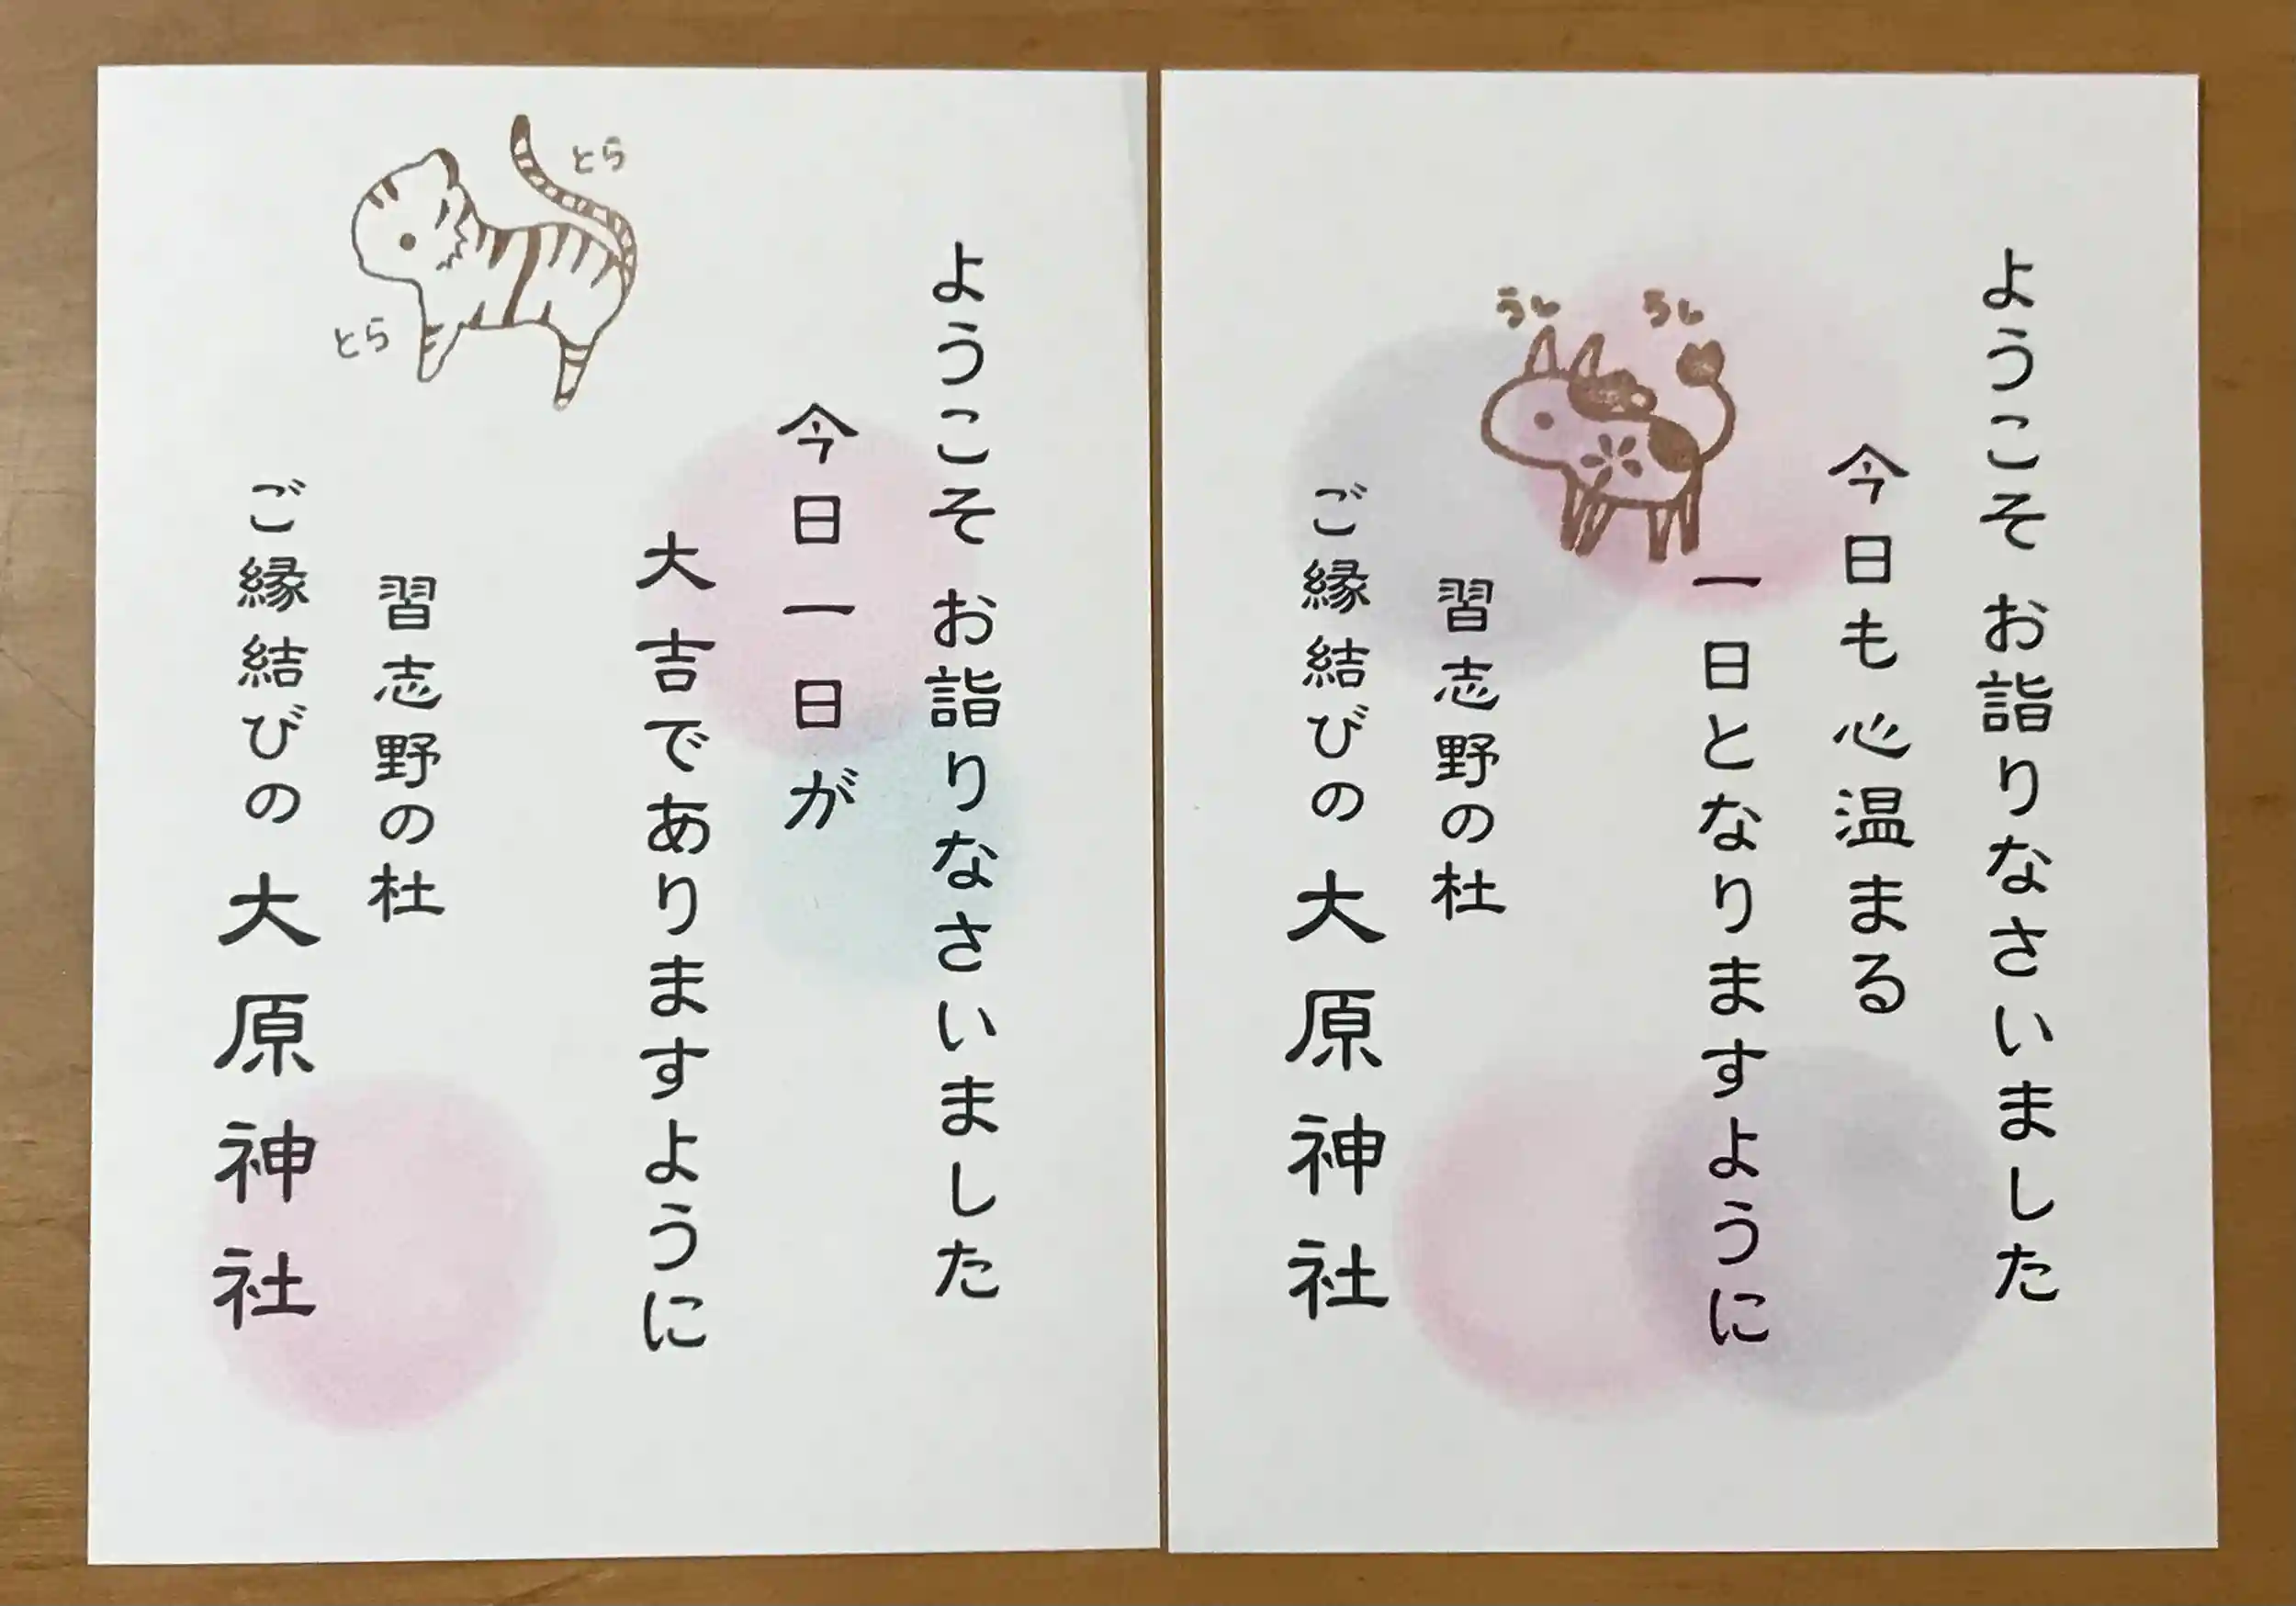 ようこそ お詣りなさいました
今日も 心温まる
一日となりますように
習志野の杜
ご縁結びの 大原神社
うし
うし
ようこそ お詣りなさいました
今日一日が
大吉でありますように
習志野の杜
ご縁結びの 大原神社
とら
とら